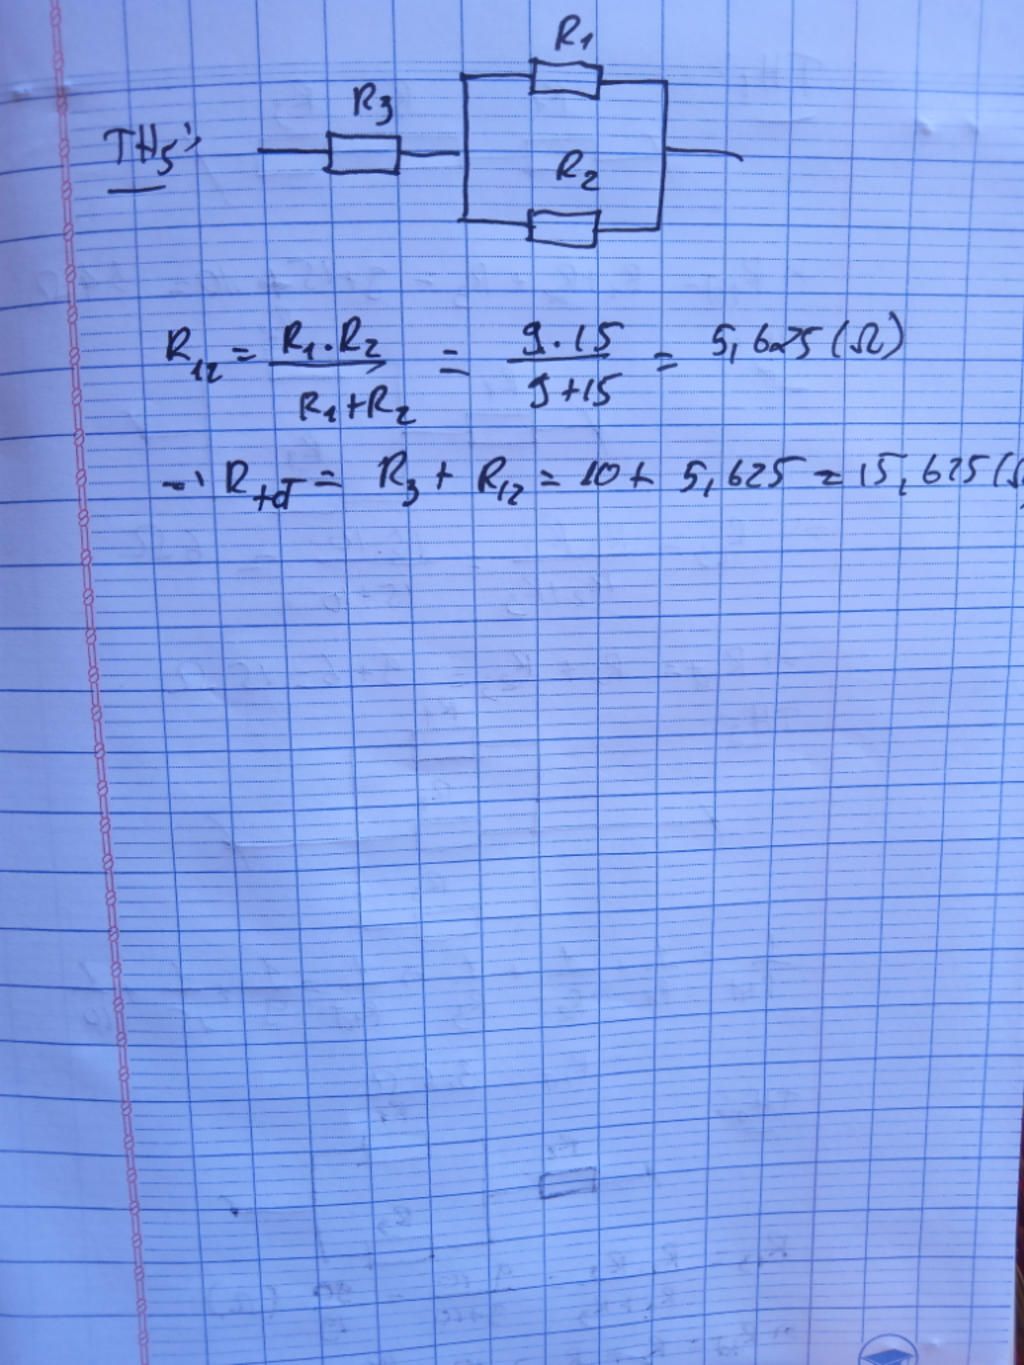 R₁
R₃
TH₅:
R₂
R₁₂ = R₁.R₂ / R₁+R₂ = 9.15 / 9+15 = 5,625 (Ω)
→ R_tđ = R₃ + R₁₂ = 10 + 5,625 = 15,625 (Ω